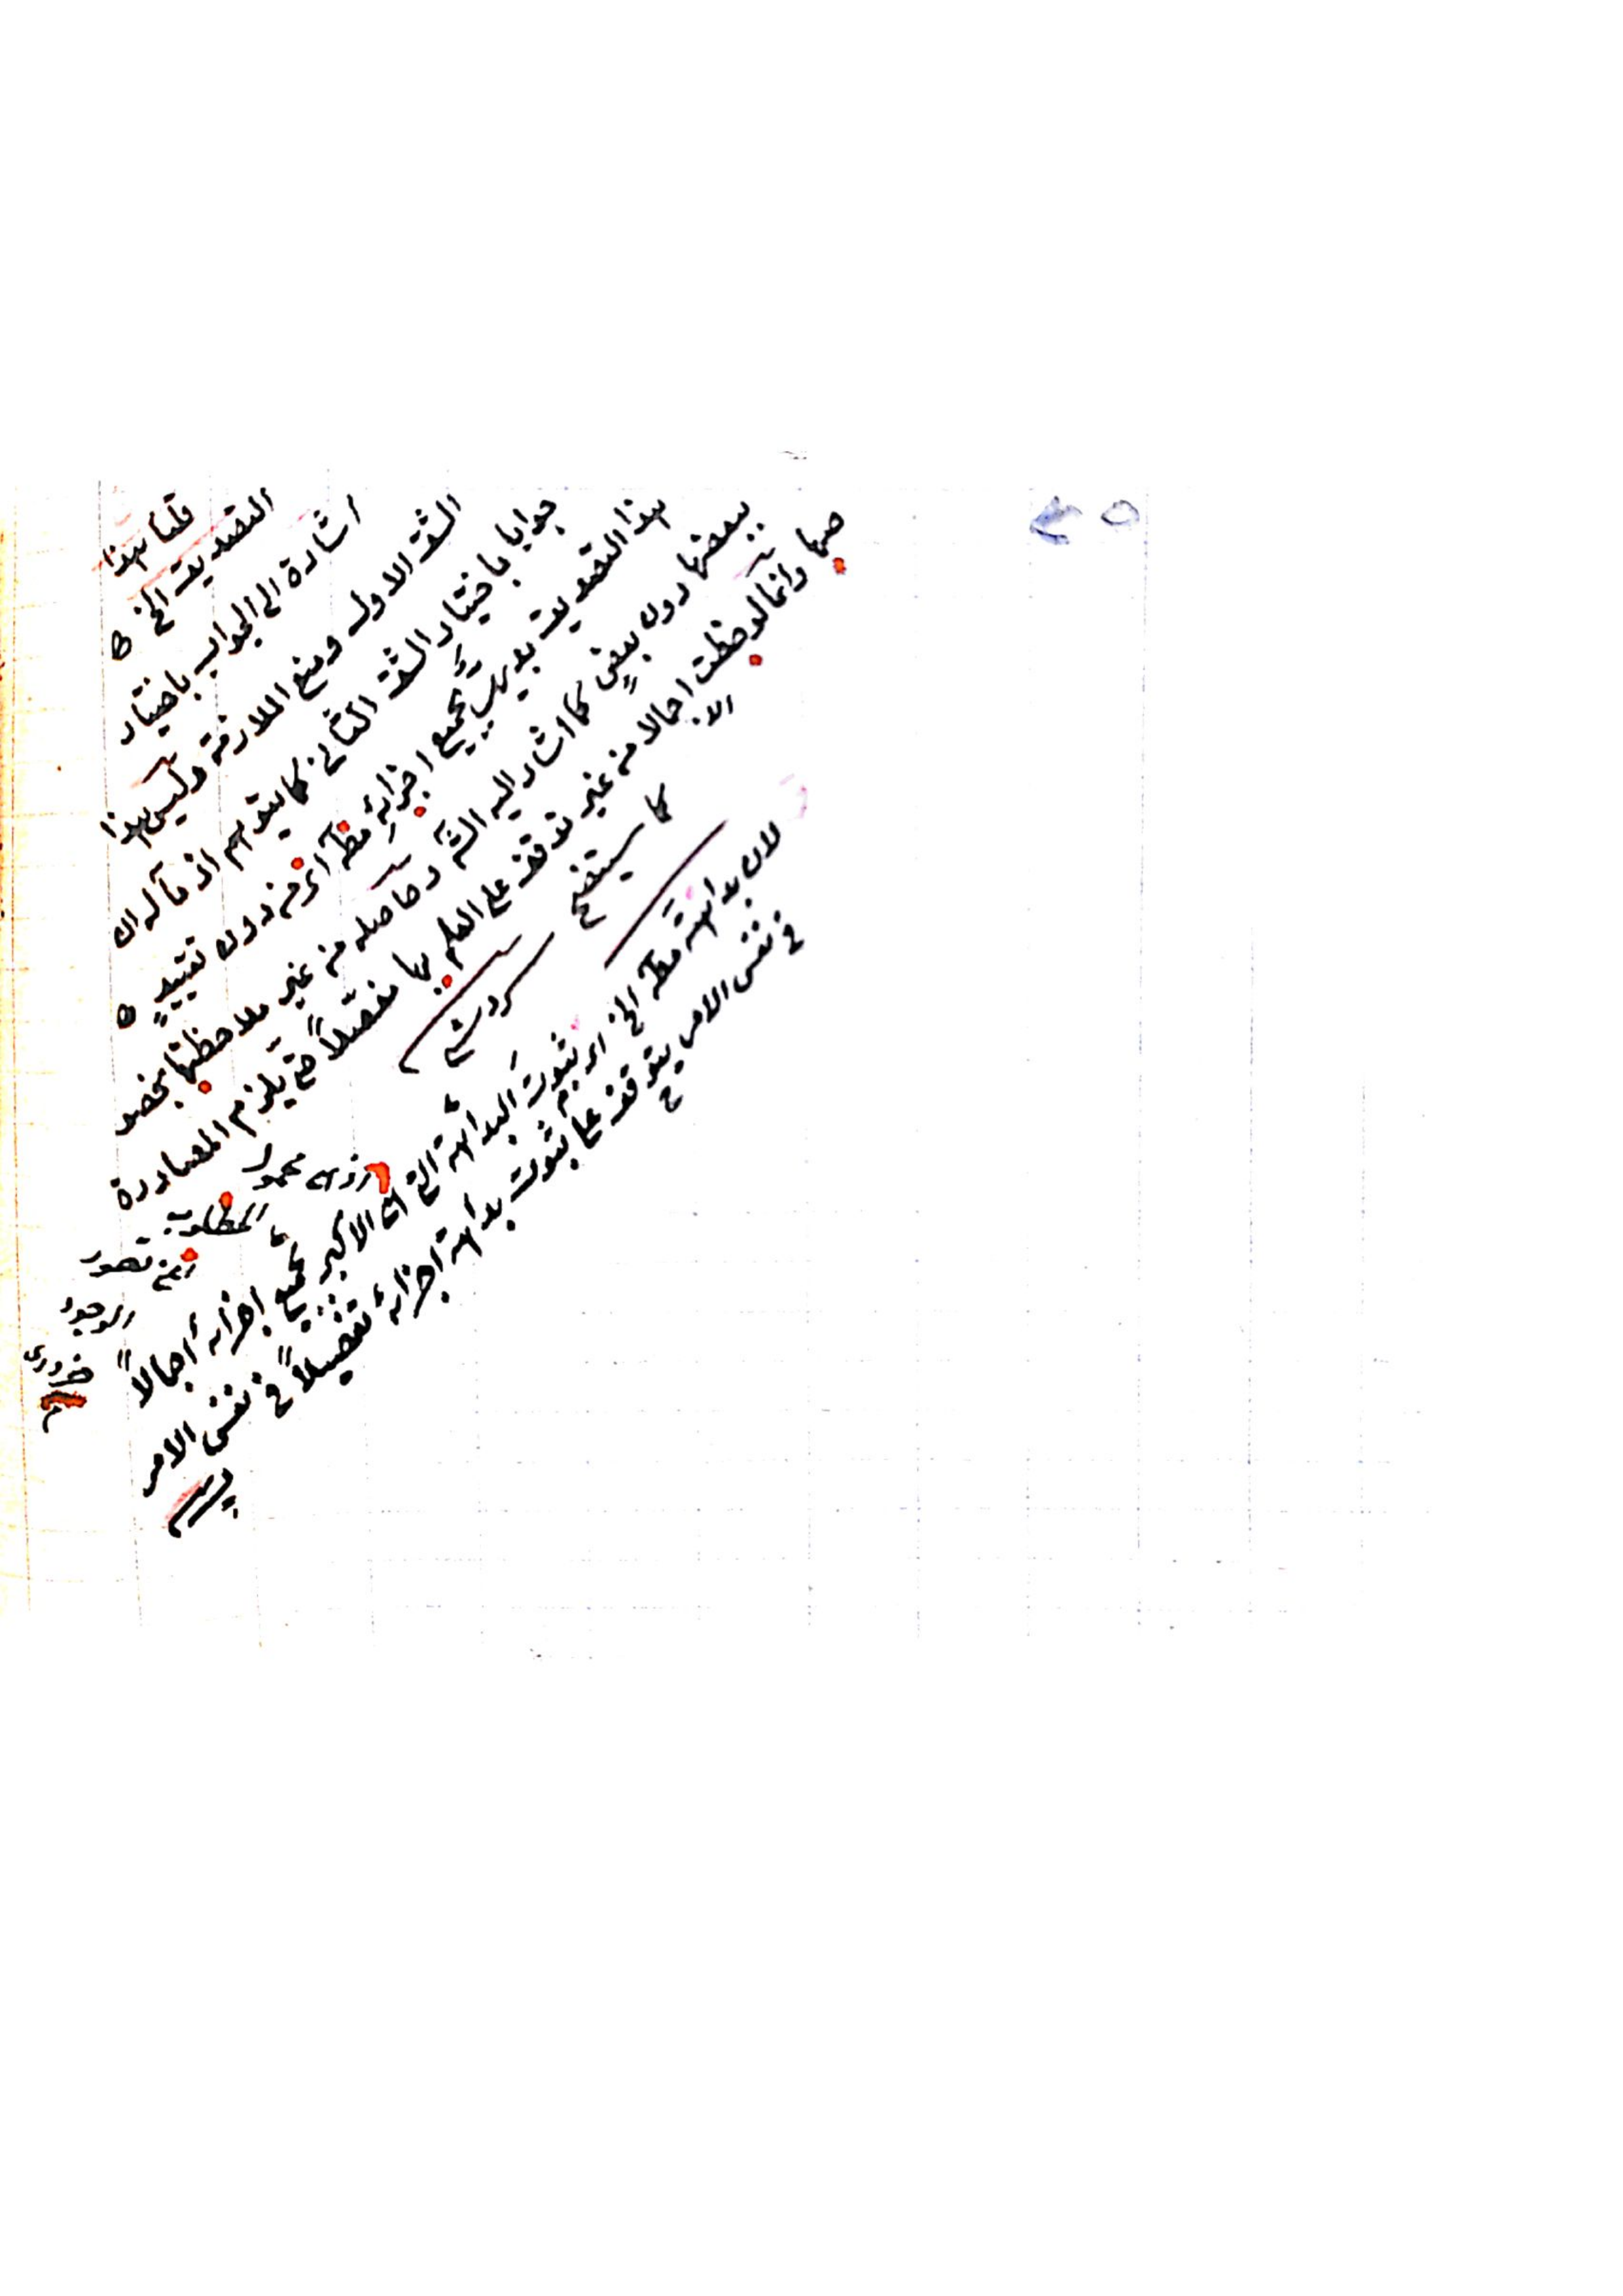 قلنا هذا
التصديق الخ ه
اشارة الى الجواب باختيار
الشق الاول ومنع الملازمة وليس هذا
جوابا باختيار الشق الثانى كما يتوهم اذ مآله ان
هذا التصديق بديهى بجميع اجزائه مط اى من دون تقييد ه
ببعضها دون بعض كما اشار اليه الش وحاصله من غير ملاحظتها بخصو
صها وانما لوحظت اجمالا من غير توقف على العلم بها مفصّلاً حتى يلزم المصادرة
الا
كما سيتضح
لان بداهته مط الخ اى ثبوت البداهة الخ اى الاكبر بجميع اجزائه اجمالاً
فى نفس الامر يتوقف على ثبوت بداهة اجزائه تفصيلاً فى نفس الامر
محمول
المطلوب
اعنى تصور
الوجود
ضرورى
م